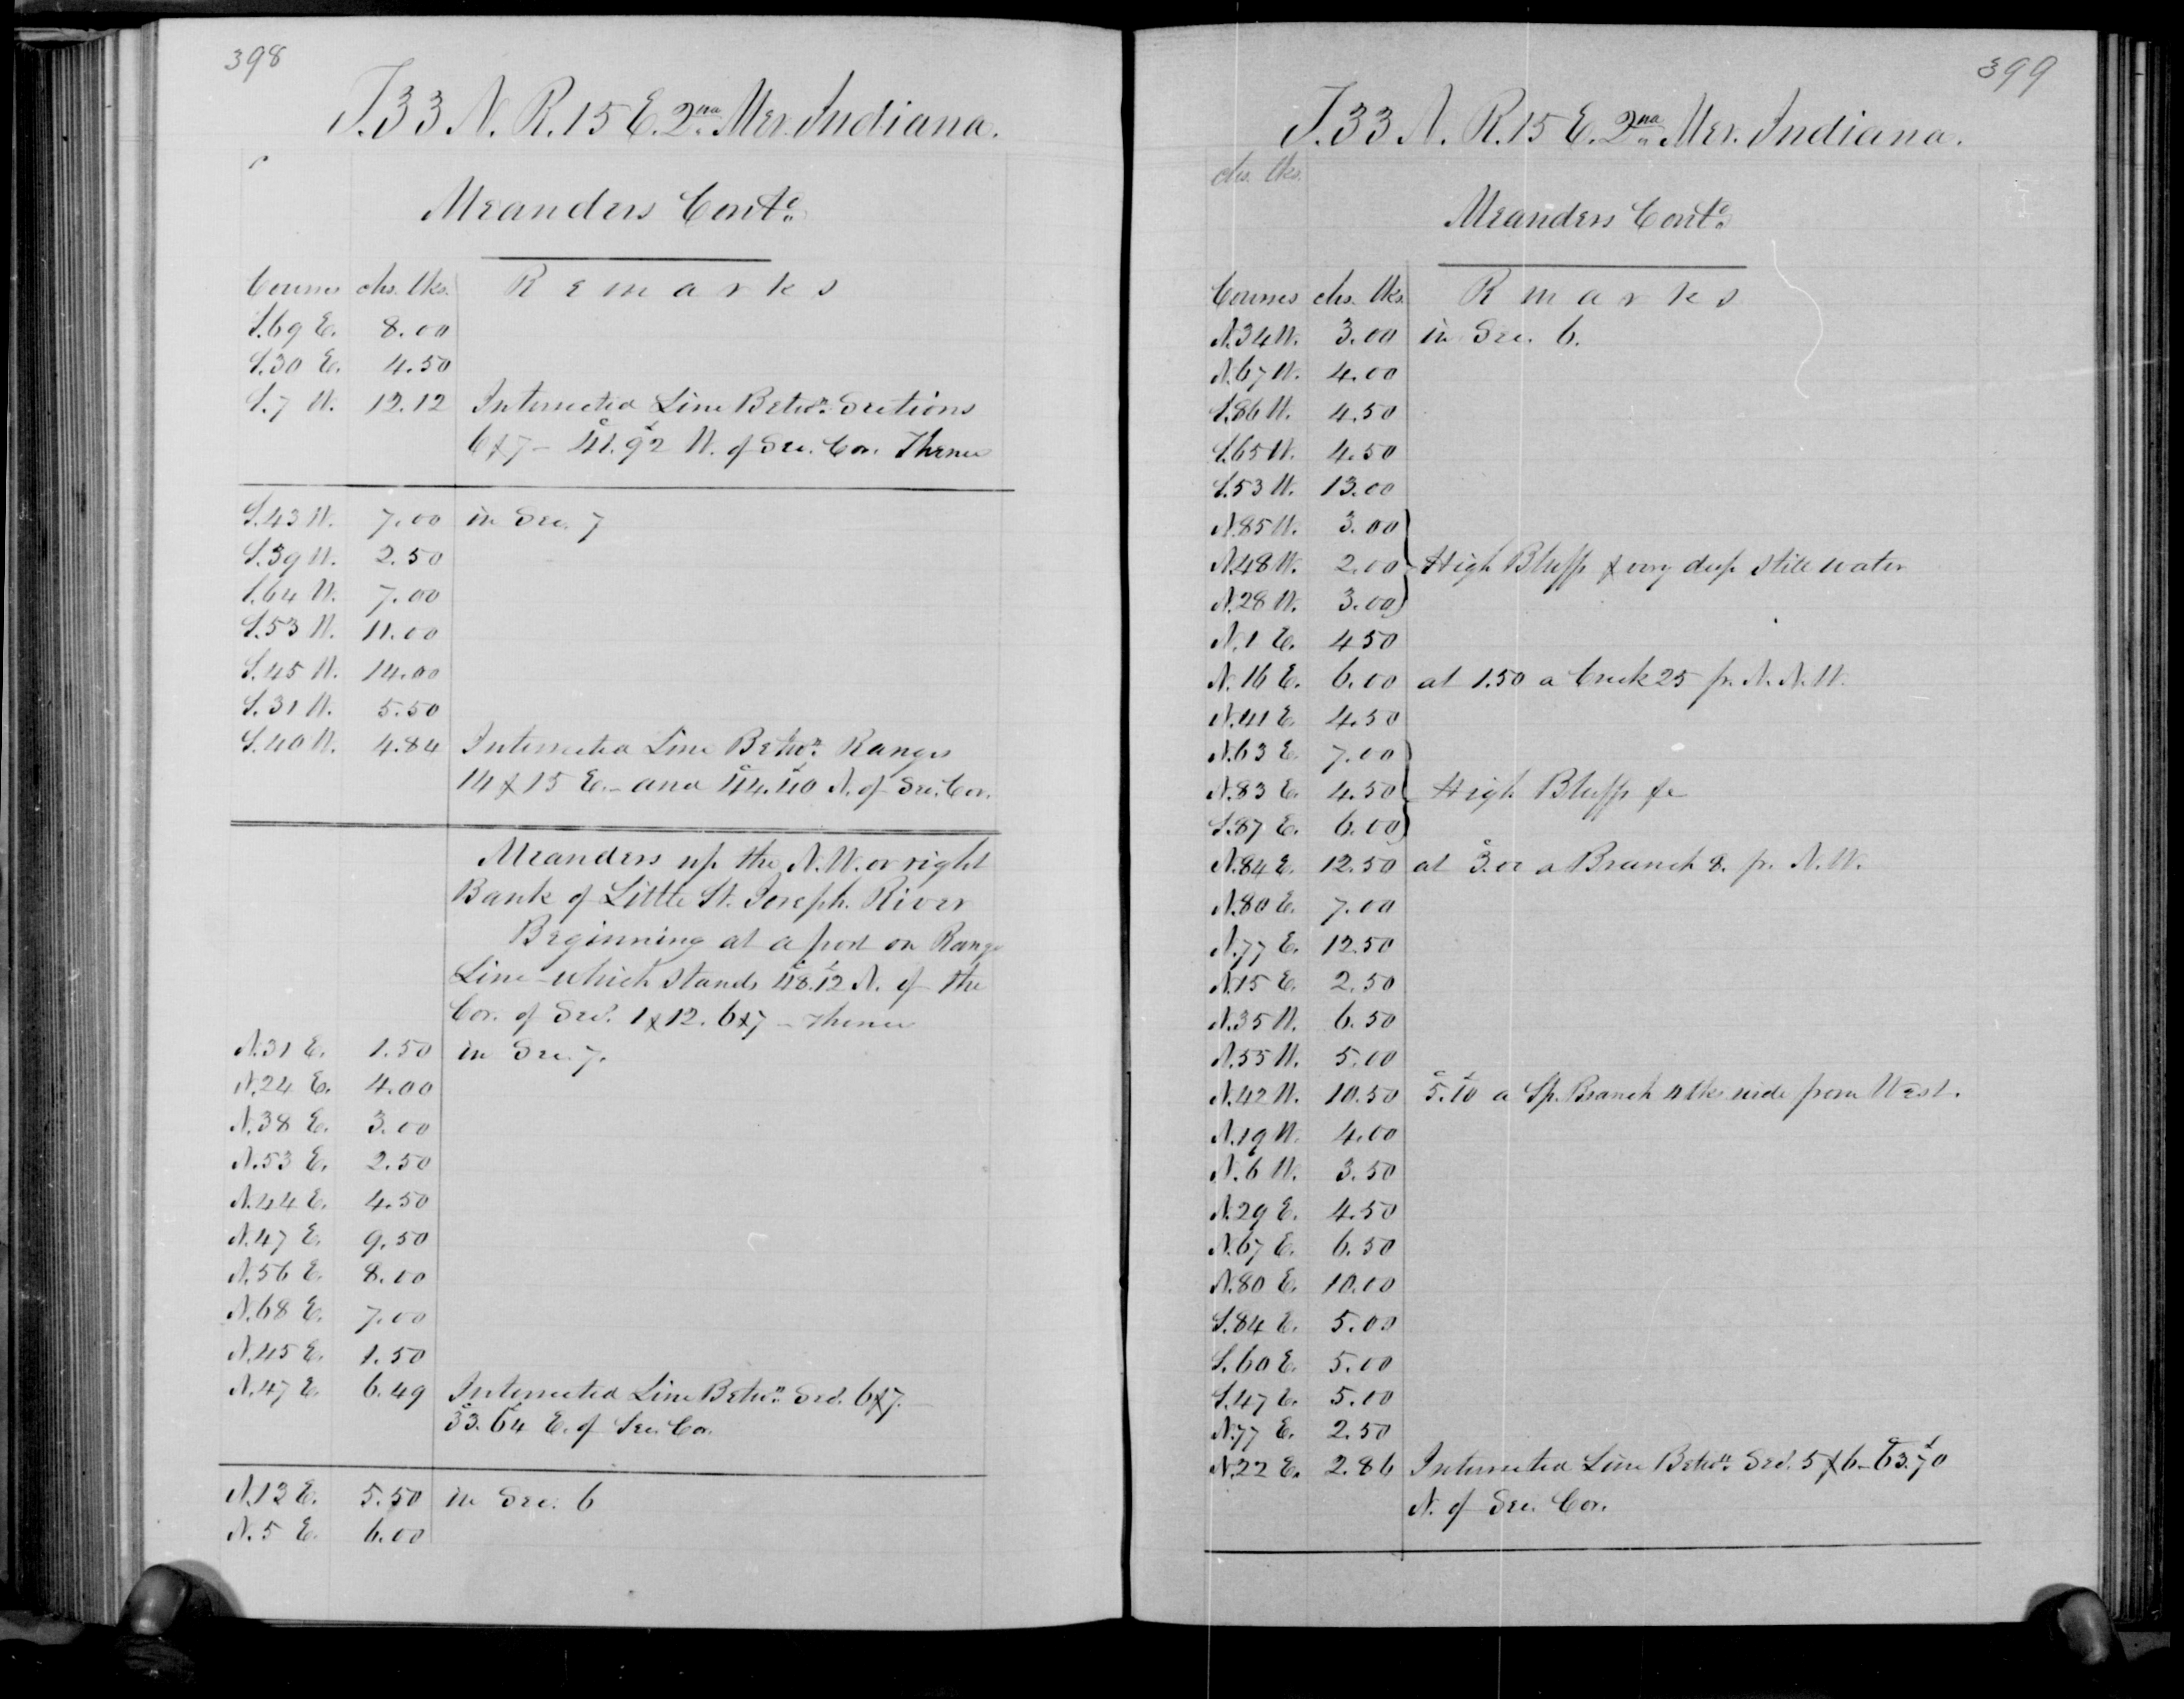 398
T.33 N. R.15 E. 2nd Mer. Indiana.
Meanders Contd
Courses chs. lks. Remarks
S.69 E. 8.00
S.30 E. 4.50
S.7 W. 12.12 Intersected Line Betwn. Sections
6 & 7 - 41.92 W. of Sec. Cor. Thence
S.43 W. 7.00 in Sec. 7
S.39 W. 2.50
S.64 W. 7.00
S.53 W. 11.00
S.45 W. 14.00
S.31 W. 5.50
S.40 W. 4.84 Intersected Line Betwn. Ranges
14 & 15 E. - and 44.40 N. of Sec. Cor.
Meanders up the N.W. or right
Bank of Little St. Joseph. River
Beginning at a post on Range
Line - which stands 48.12 N. of the
Cor. of Secs. 1 & 12. 6 & 7 - Thence
N.31 E. 1.50 in Sec. 7.
N.24 E. 4.00
N.38 E. 3.00
N.53 E. 2.50
N.44 E. 4.50
N.47 E. 9.50
N.56 E. 8.00
N.68 E. 7.00
N.45 E. 1.50
N.47 E. 6.49 Intersected Line Betwn. Secs. 6 & 7. -
33.64 E. of Sec. Cor.
N.12 E. 5.50 in Sec. 6
N.5 E. 6.00
399
T.33 N. R.15 E. 2nd Mer. Indiana.
chs. lks.
Meanders Contd
Courses chs. lks. Rmarks
N.34 W. 3.00 in Sec. 6.
N.67 W. 4.00
S.86 W. 4.50
S.65 W. 4.50
S.53 W. 13.00
N.85 W. 3.00
N.48 W. 2.00 High Bluffs & very deep still water
N.28 W. 3.00
N.1 E. 4 50
N.16 E. 6.00 at 1.50 a Creek 25 fr. N.N.W.
N.41 E. 4.50
N.63 E. 7.00
N.83 E. 4.50 High Bluffs &c
S.87 E. 6.00
N.84 E. 12.50 at 3.00 a Branch 8. fr. N.W.
N.80 E. 7.00
N.77 E. 12.50
N.15 E. 2.50
N.35 W. 6.50
N.55 W. 5.00
N.42 W. 10.50 5.10 a Sp. Branch 4 lks wide from West.
N.19 W. 4.00
N.6 W. 3.50
N.29 E. 4.50
N.67 E. 6.50
N.80 E. 10.00
S.84 E. 5.00
S.60 E. 5.00
S.47 E. 5.00
N.77 E. 2.50
N.22 E. 2.86 Intersected Line Betwn. Secs. 5 & 6 - 63.70
N. of Sec. Cor.